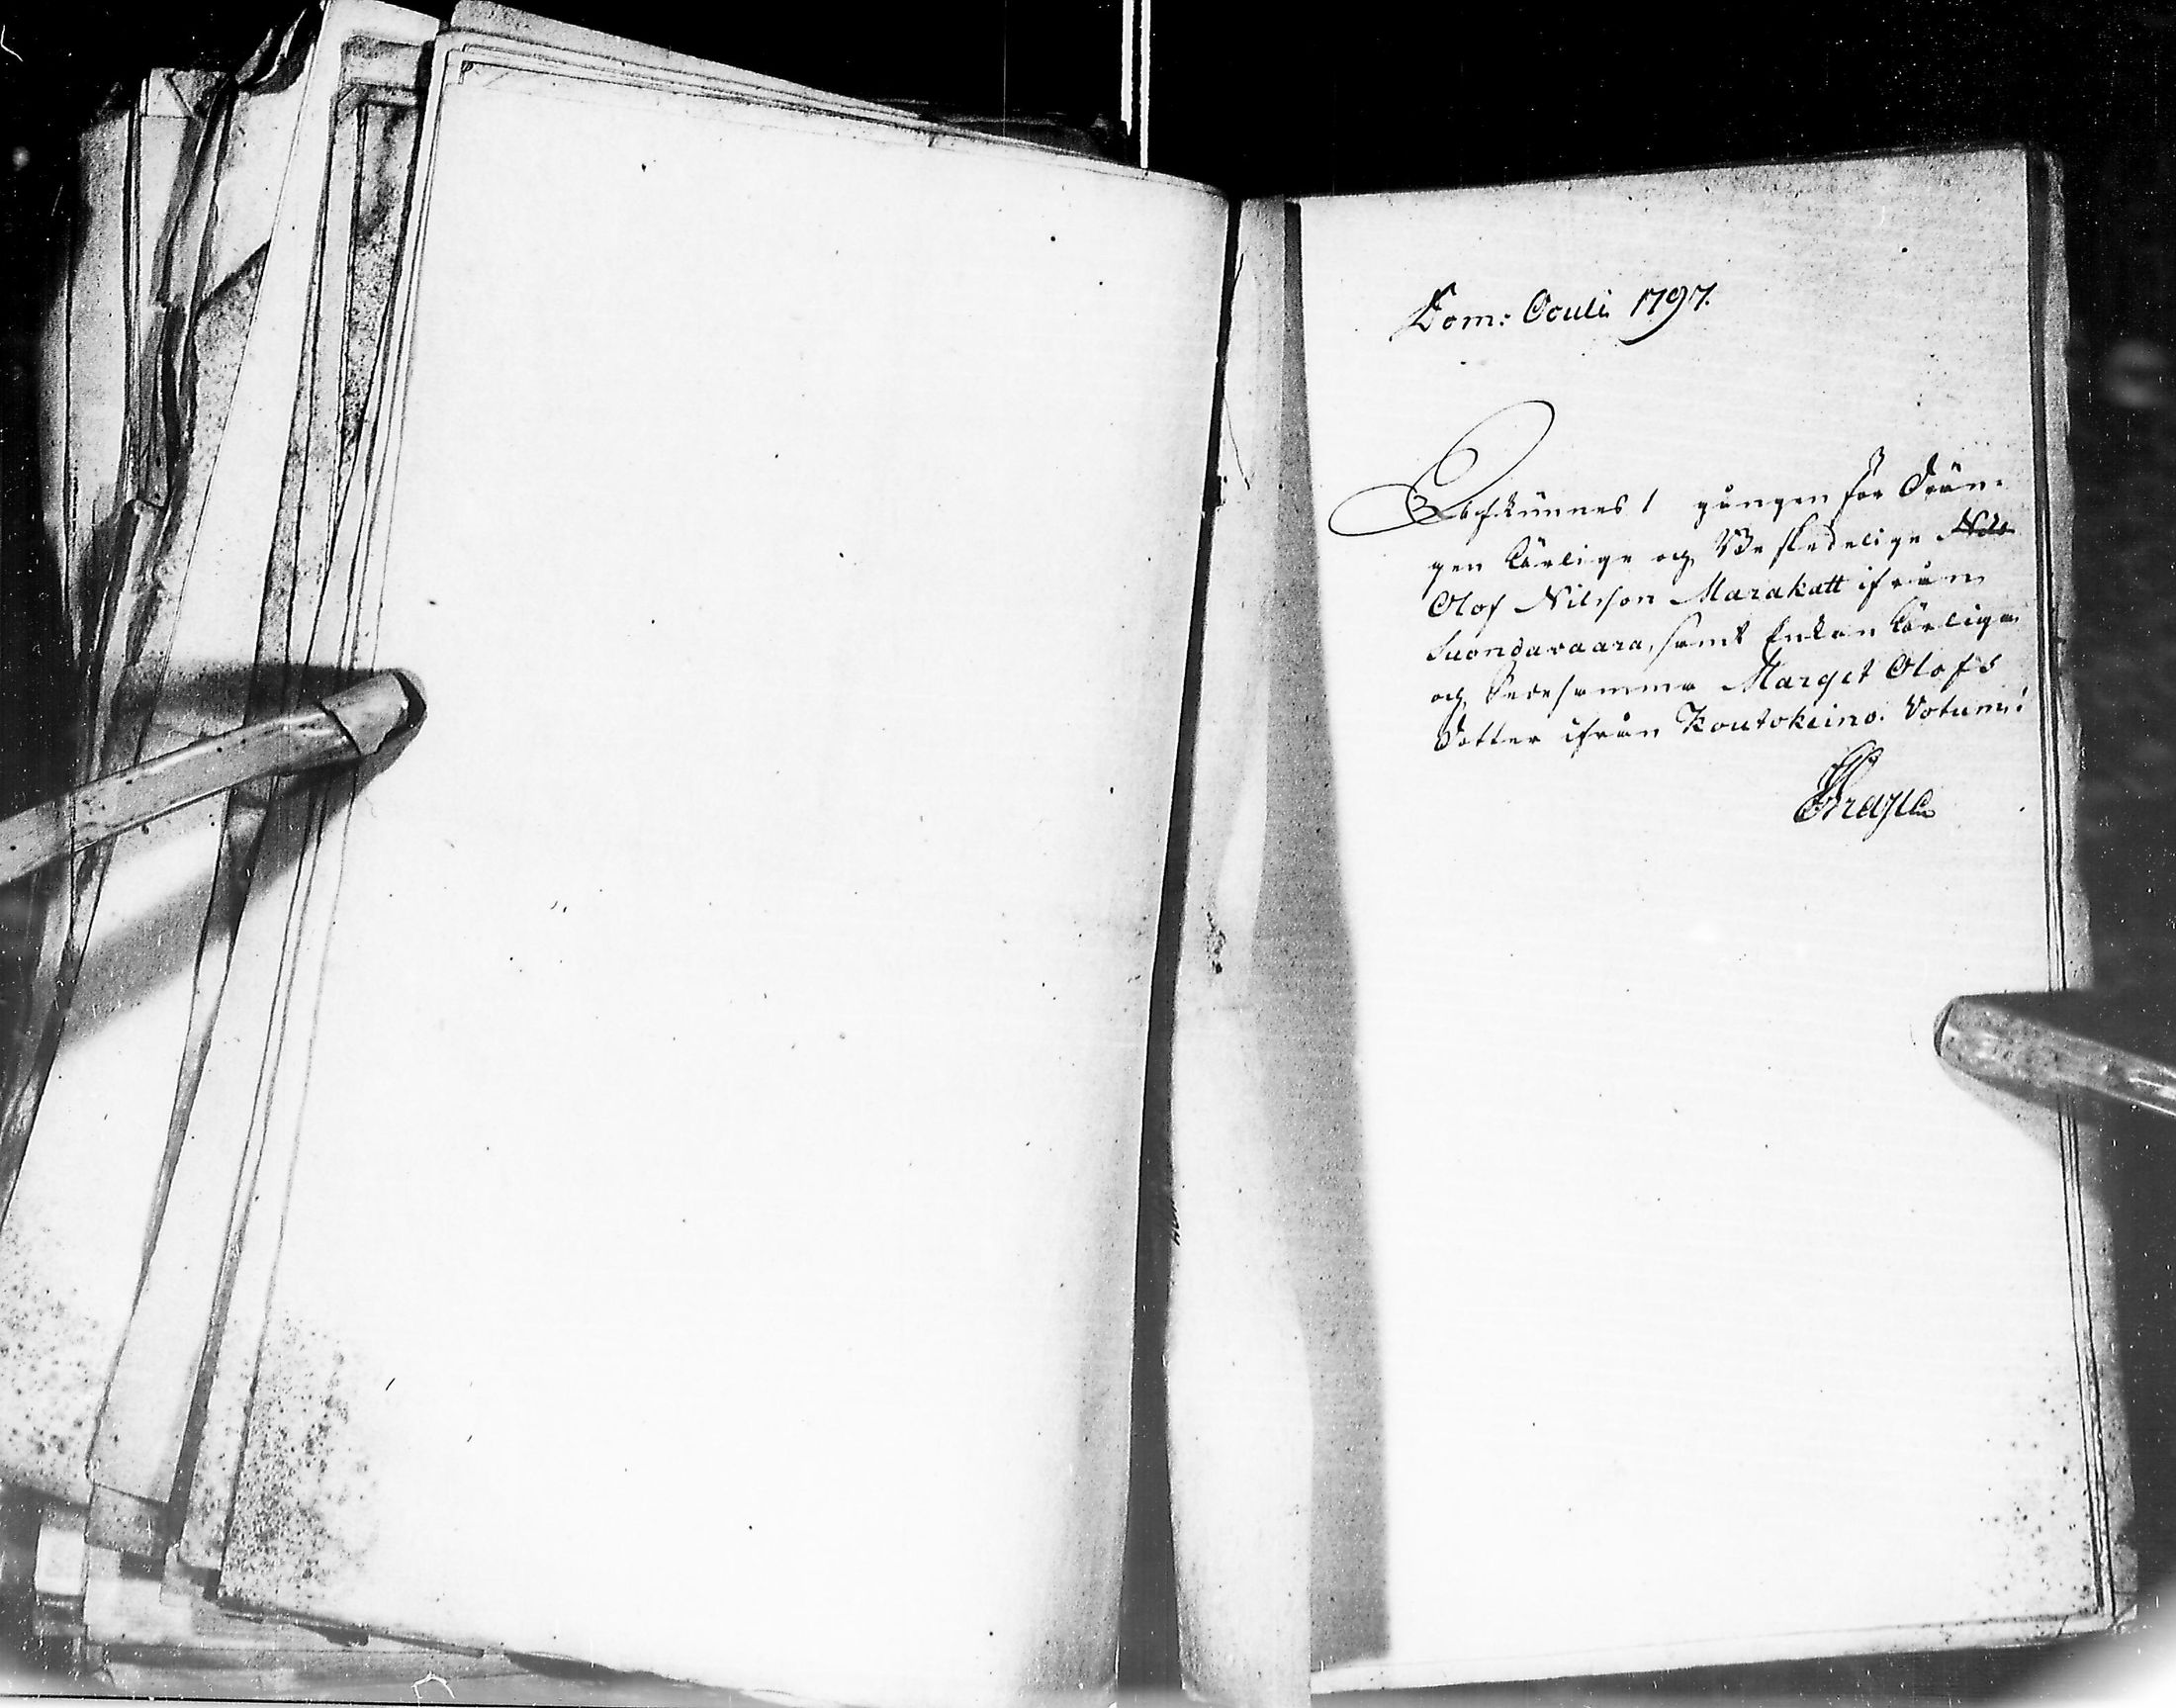 Dom: Oculi 1797.
Afkunnes 1 gången för Drän-
gen Ärlige och Beskedelige
Olof Nilsson Marakatt ifrån
Suondavaara, samt Enkan Ärliga
och Sedesamma Marget Olofs
Dotter ifrån Koutokeino. Votum: